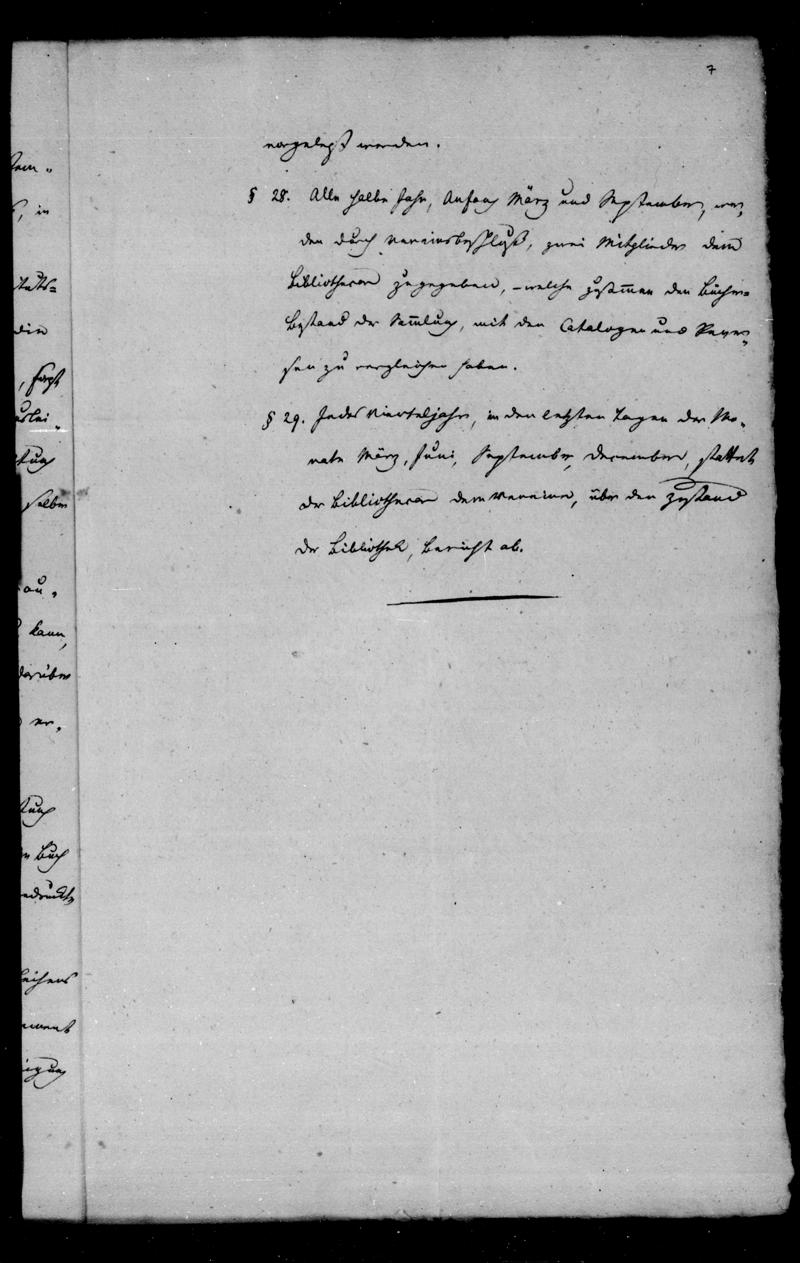 7
vorgelegt werden.
§ 28. Alle halbe Jahr, Anfang März und September, wer„
den durch Vereinsbeschluß, zwei Mitglieder dem
Bibliothecar zugegeben, – welche zusam̅en den Bücher=
bestand der Sam̅lung, mit den Catalogen und Rever„
sen zu vergleichen haben.
§ 29. Jedes Vierteljahr, in den letzten Tagen der Mo„
nate März, Juni, September, December, stattet
der Bibliothecar dem Vereine, über den Zustand
der Bibliothek, Bericht ab.
in
die
selben
kann,
darüber
er„
Buch